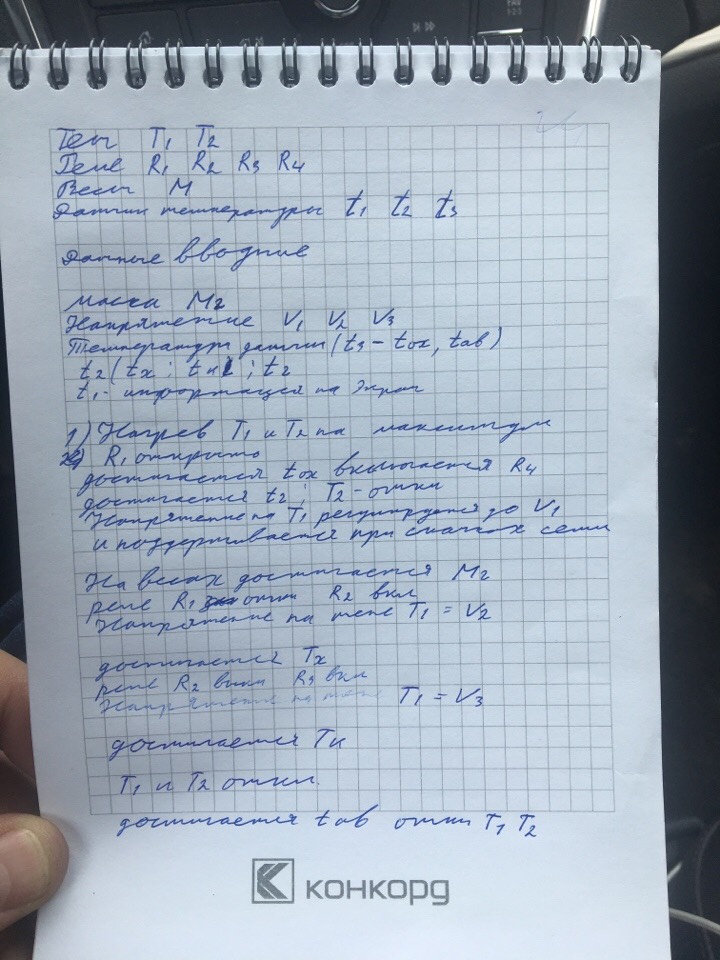 Тены T₁ T₂
Реле R₁ R₂ R₃ R₄
Весы M
Датчики температуры t₁ t₂ t₃
Данные вводние
масса M₂
Напряжение V₁ V₂ V₃
Температуры датчик (t₃ – tох, tав)
t₂ (tх ; tк ; t₂
t₁ - информация на экран
1) Нагрев T₁ и T₂ на максимум
R₁ открыто
достигается tох включается R₄
достигается t₂ ; T₂ - откл
Напряжение на T₁ регулируется до V₁
и поддерживается при скачках сети
На весах достигается M₂
реле R₁ откл R₂ вкл
Напряжение на тене T₁ = V₂
достигается Tх
реле R₂ выкл R₃ вкл
Напряжение на тене T₁ = V₃
достигается Tк
T₁ и T₂ откл.
достигается tав откл T₁ T₂
КОНКОРД